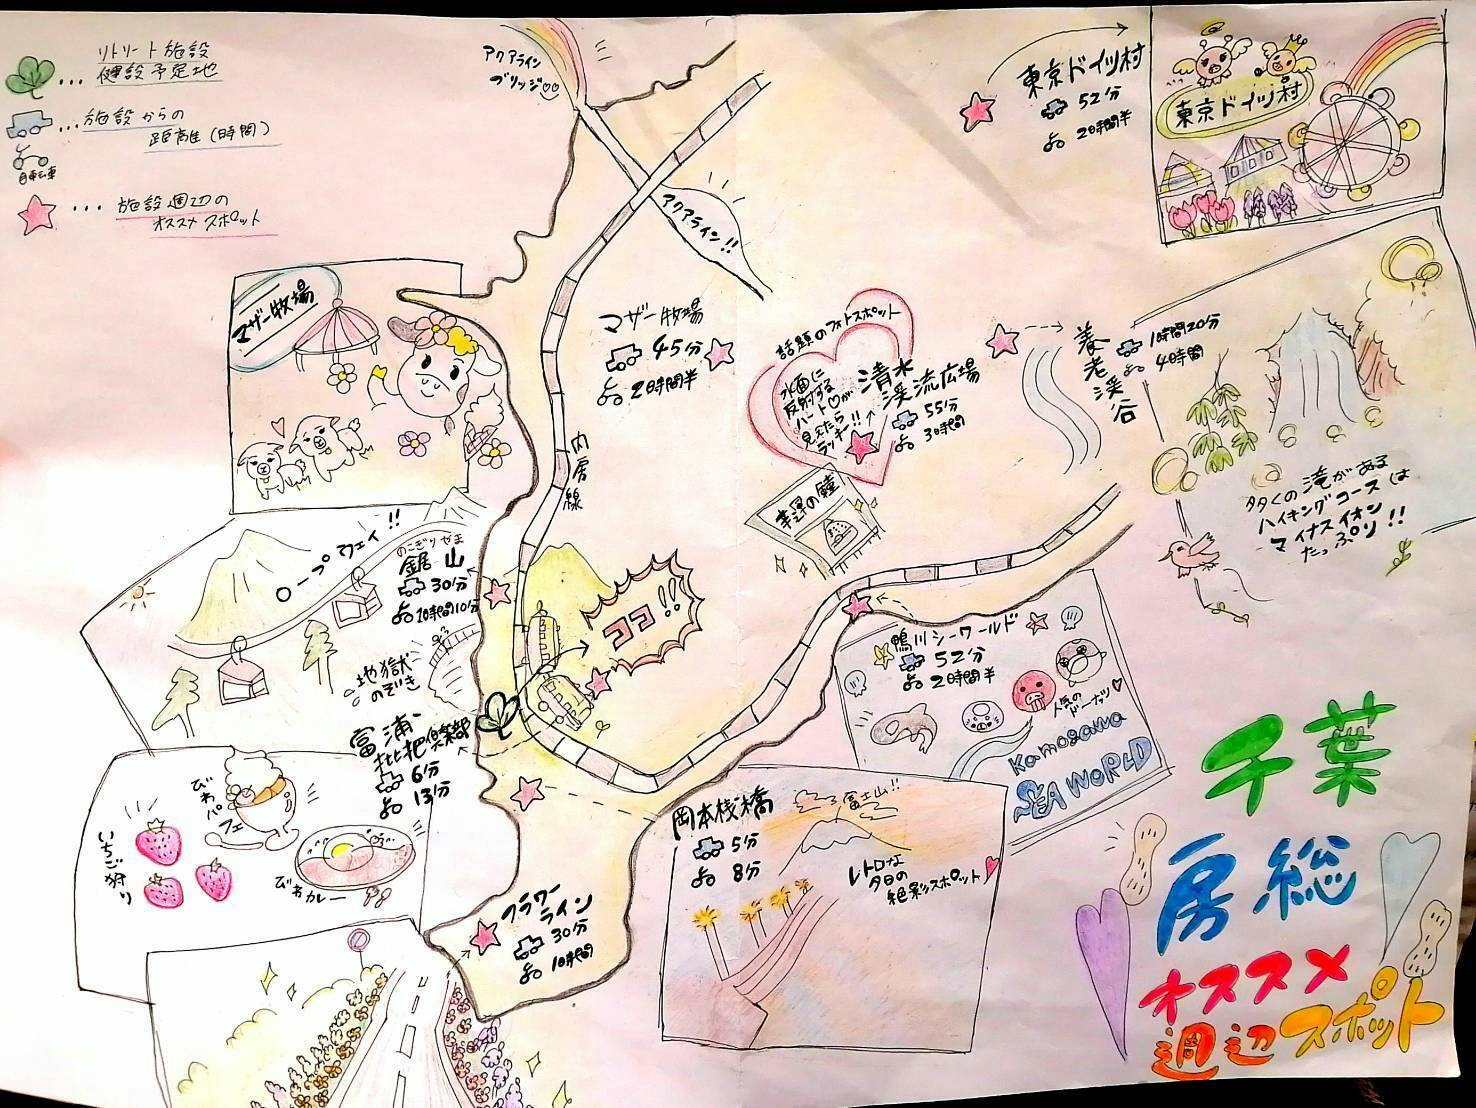 リトリート施設
健設予定地
...施設からの
距離(時間)
自転車
...施設週辺の
オススメスポット
アクアライン
ブリッジ
アクアライン!!
東京ドイツ村
52分
2時間半
東京ドイツ村
マザー牧場
マザー牧場
45分
2時間半
話題のフォトスポット
水面に
反射する
ハート♡が
見えたら
ラッキー!!
清水
渓流広場
55分
3時間
養老渓谷
1時間20分
4時間
多くの滝がある
ハイキングコースは
マイナスイオン
たっぷり!!
内房線
幸澤の鐘
ロープウェイ!!
鋸山
30分
1時間10分
地獄
のぞき
ココ!!
鴨川シーワールド
52分
2時間半
人気の
ドーナッツ♡
Kamogawa
SEA WORLD
富浦
枇杷倶楽部
6分
13分
びわパフェ
いちご狩り
びわカレー
岡本桟橋
5分
8分
富士山!!
レトロな
夕日の
絶影スポット
フラワー
ライン
30分
1時間
千葉
房総
オススメ
週辺スポット